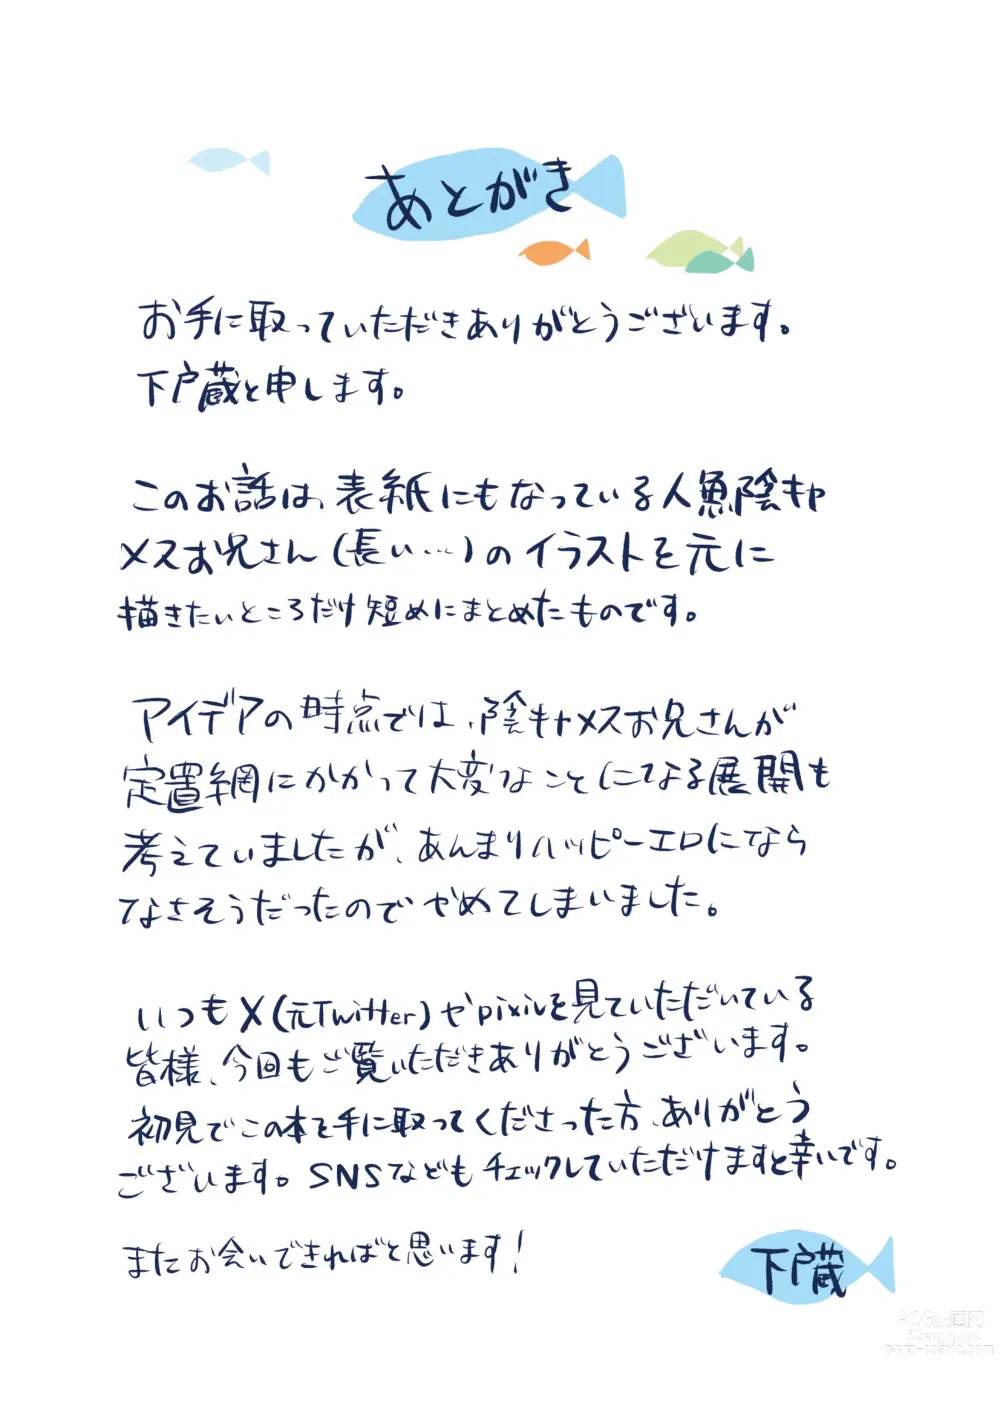 あとがき
お手に取っていただきありがとうございます。
下戸蔵と申します。
このお話は、表紙にもなっている人魚陰キャ
メスお兄さん(長い…)のイラストを元に
描きたいところだけ短めにまとめたものです。
アイデアの時点では、陰キャメスお兄さんが
定置網にかかって大変なことになる展開も
考えていましたが、あんまりハッピーエロになら
なさそうだったのでやめてしまいました。
いつもX(元Twitter)やpixivを見ていただいている
皆様、今回もご覧いただきありがとうございます。
初見でこの本を手に取ってくださった方、ありがとう
ございます。SNSなどもチェックしていただけますと幸いです。
またお会いできればと思います!
下戸蔵
porn-comic.com